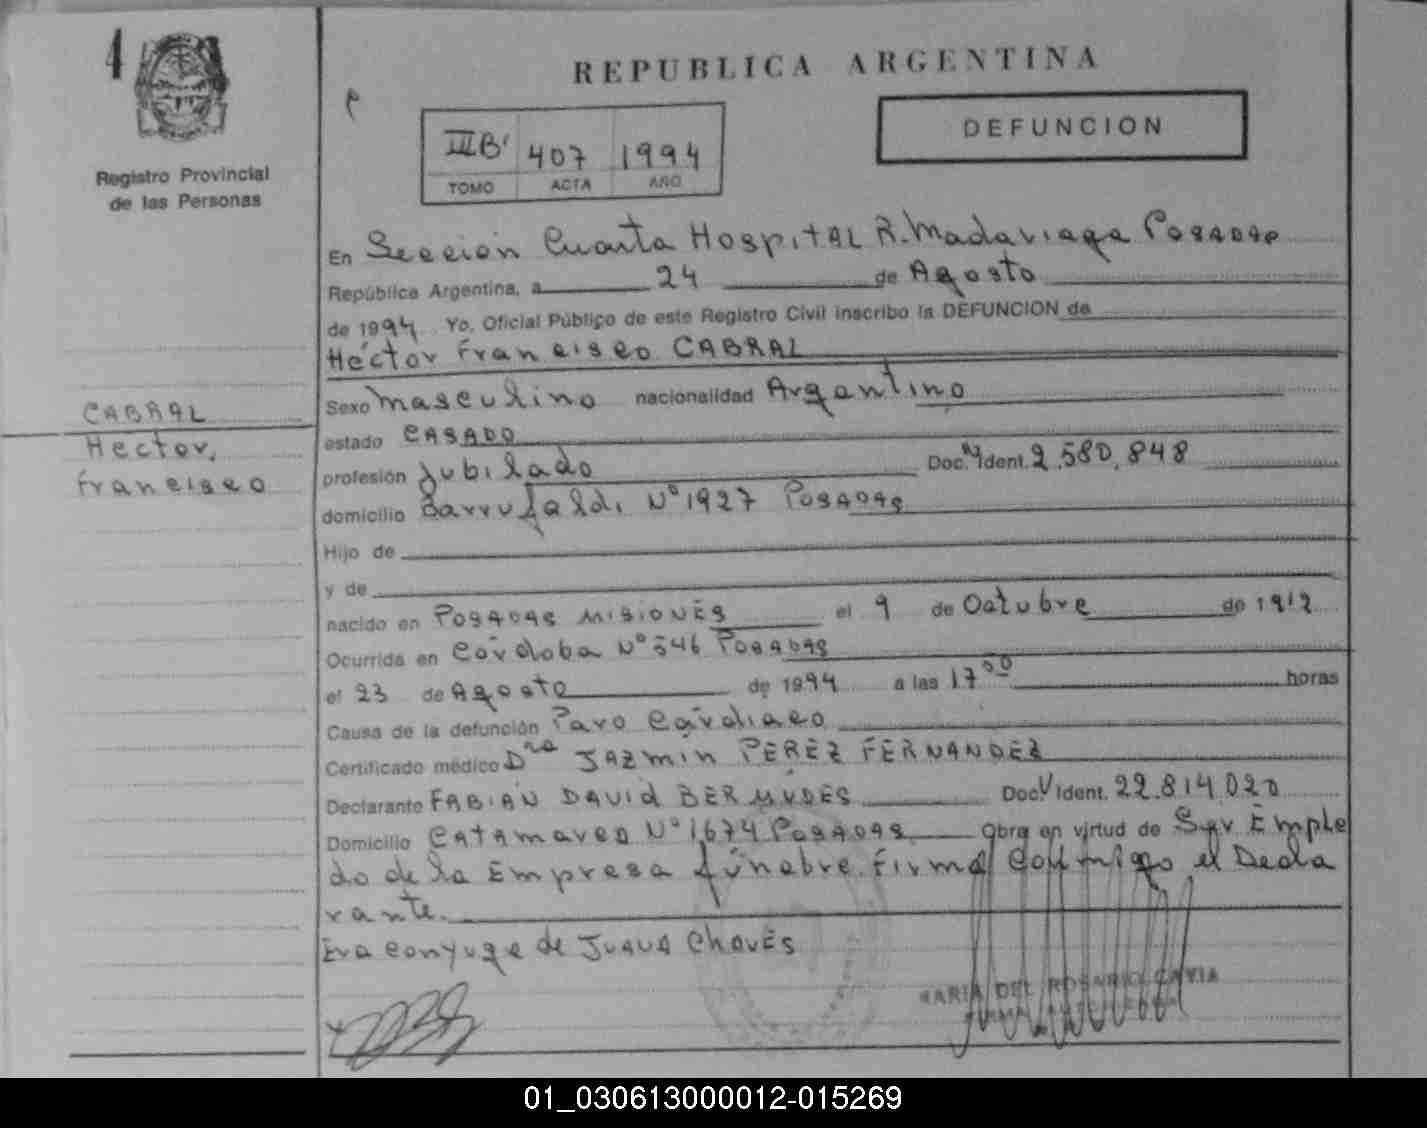 1
REPUBLICA ARGENTINA
DEFUNCION
IIIB' 407 1994
TOMO ACTA AÑO
Registro Provincial
de las Personas
CABRAL
Hector,
Francisco
En Sección Cuarta Hospital R. Madariaga Posadas
República Argentina, a 24 de Agosto
de 1994 Yo, Oficial Público de este Registro Civil inscribo la DEFUNCION de
Héctor Francisco CABRAL
Sexo masculino nacionalidad Argentino
estado CASADO
profesión Jubilado Doc. Ident. 2.580.848
domicilio Barrufaldi Nº 1927 Posadas
Hijo de
y de
nacido en Posadas Misiones el 9 de Octubre de 1912
Ocurrida en Córdoba Nº 346 Posadas
el 23 de Agosto de 1994 a las 17 00 horas
Causa de la defunción Paro Cardiaco
Certificado médico Dra JAZMIN PEREZ FERNANDEZ
Declarante FABIAN DAVID BERMUDES Doc. Ident. 22.814.020
Domicilio Catamarca Nº 1674 Posadas Obra en virtud de Ser Emplea
do de la Empresa fúnebre. Firma Conmigo el Decla
rante.
Era conyuge de Juana Chaves
MARIA DEL ROSARIO GAVIA
01_030613000012-015269